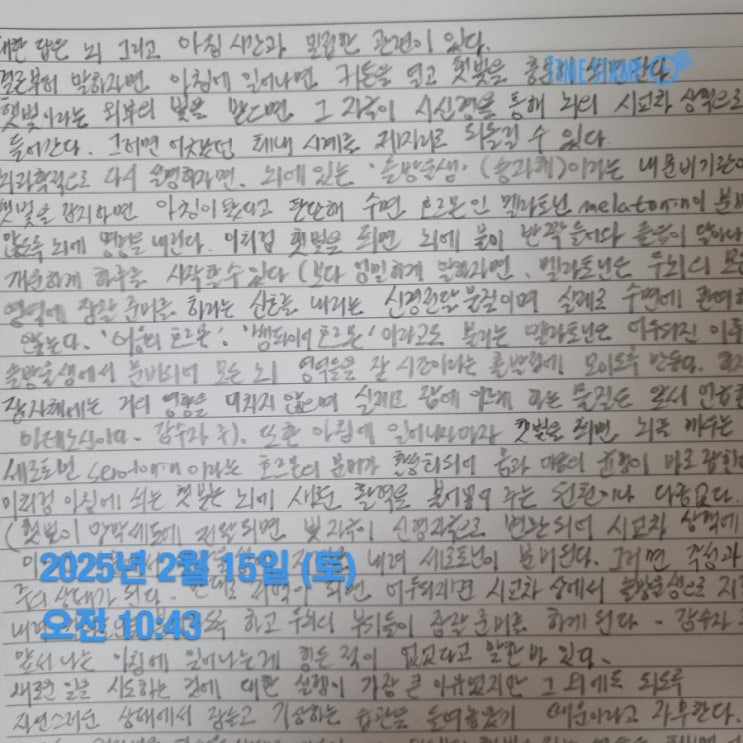 대한 답은 뇌 그리고 아침 시간과 밀접한 관련이 있다.
결론부터 말하자면 아침에 일어나면 커튼을 열고 햇빛을 충분히 쬐면 된다
TIMESTAMP
햇빛이라는 외부의 빛을 받으면 그 자극이 시신경을 통해 뇌의 시교차 상핵으로
들어간다. 그러면 어긋났던 체내 시계를 제자리로 되돌릴 수 있다.
뇌과학적으로 다시 설명하자면, 뇌에 있는 '솔방울샘' (송과체)이라는 내분비기관이
햇빛을 감지하면 아침이 됐다고 판단해 수면 호르몬인 멜라토닌 melatonin이 분비
않도록 뇌에 명령을 내린다. 이처럼 햇빛을 쬐면 뇌에 불이 반짝 들어와 졸음이 달아나
개운하게 하루를 시작할 수 있다 (보다 엄밀하게 말하자면, 멜라토닌은 우뇌의 모든
영역에 잠잘 준비를 하라는 신호를 내리는 신경전달물질이며 실제로 수면에 관여하
않는다. '어둠의 호르몬', '뱀파이어 호르몬'이라고도 불리는 멜라토닌은 어두워진 이후
솔방울샘에서 분비되어 모든 뇌 영역들을 잘 시간이라는 출발점에 모이도록 만든다. 하지
잠 자체에는 거의 영향을 미치지 않으며 실제로 잠에 이르게 하는 물질은 앞서 언급한
아데노신이다 - 감수자 주). 또한 아침에 일어나자마자 햇빛을 쬐면 뇌를 깨우는
세로토닌 serotonin이라는 호르몬의 분비가 활성화되어 몸과 마음의 균형이 바로 잡힌다
이처럼 아침에 쬐는 햇빛은 뇌에 새로운 활력을 불어넣어 주는 원천이나 다름없다.
(햇빛이 망막세포에 전달되면 빛 자극이 신경자극으로 변환되어 시교차 상핵에
내려 세로토닌이 분비된다. 그러면 각성과
2025년 2월 15일 (토)
상태가 된다. 반대로 저녁이 되면 어두워지면 시교차 상에서 솔방울샘으로 지
오전 10:43
하고 우뇌의 부위들이 잠잘 준비를 하게 된다 - 감수자
앞서 나는 아침에 일어나는게 힘든 적이 없었다고 말한 바 있다.
새로운 일을 시도하는 것에 대한 설렘이 가장 큰 이유였지만 그 외에도 되도록
자연스러운 상태에서 잠들고 기상하는 습관을 들여놓았기 때문이라고 자부한다.